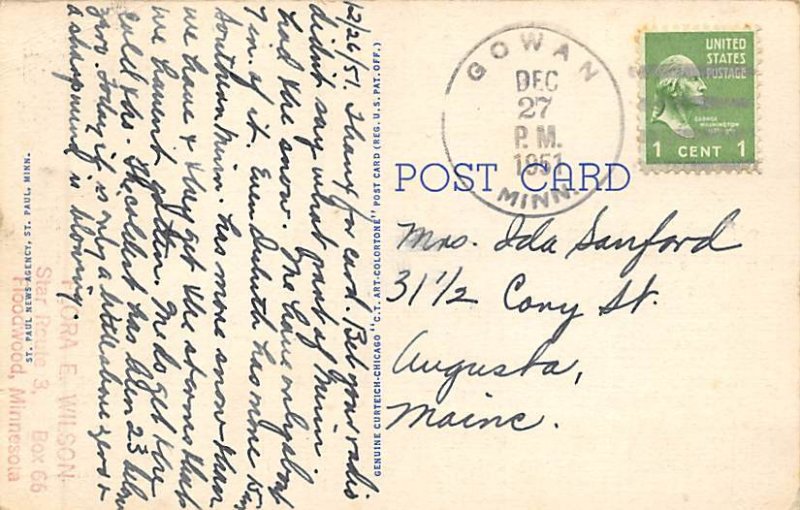 12/26/51. Thanks for card. Bet your radio
didn't say what part of Minn.
had the snow. We have only about
7 in. of it. Even Duluth has more &
Southern Minn. has more snow than
we have & they get the storms that
we haven't gotten. We do get the
cold tho. The coldest has been 23 below
zero. Today it is only a little above zero &
a sharp wind is blowing.
FLORA E. WILSON
Star Route 3, Box 66
Floodwood, Minnesota
ST. PAUL NEWS AGENCY, ST. PAUL, MINN.
GENUINE CURTEICH-CHICAGO "C.T. ART-COLORTONE" POST CARD (REG. U.S. PAT. OFF.)
GOWAN
DEC
27
P. M.
1951
MINN.
UNITED
STATES
POSTAGE
GEORGE
WASHINGTON
1 CENT 1
POST CARD
Mrs. Ida Sanford
31 1/2 Cony St.
Augusta,
Maine.